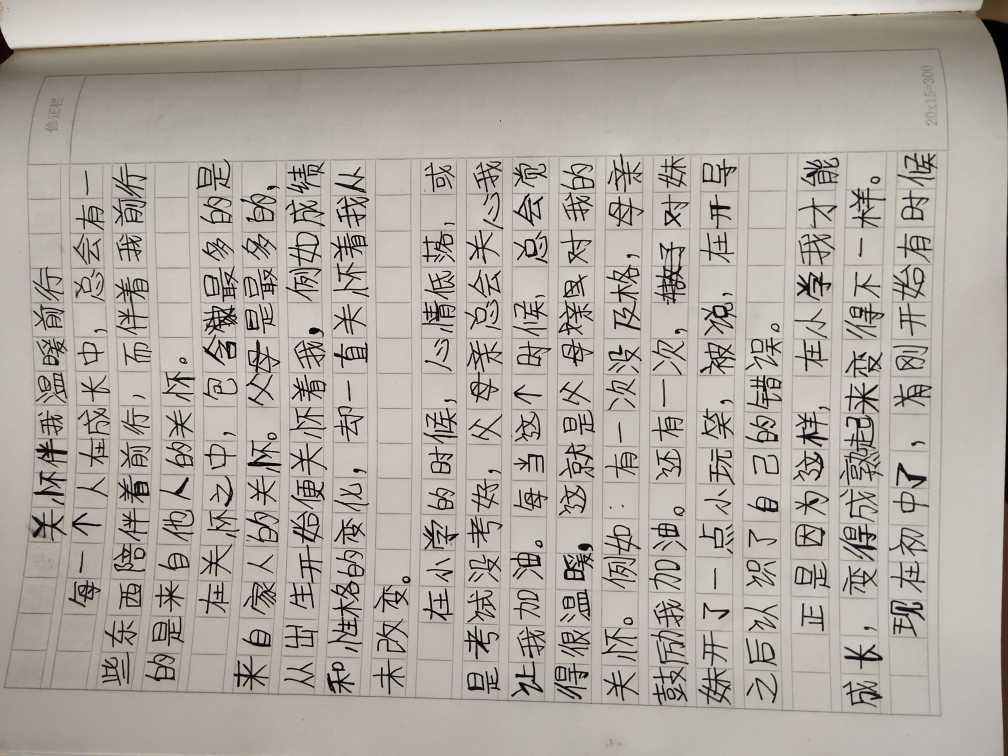 关怀伴我温暖前行
每一个人在成长中，总会有一
些东西陪伴着前行，而伴着我前行
的是来自他人的关怀。
在关怀之中，包含最多的是
来自家人的关怀。父母是最多的，
从出生开始便关怀着我，例如成绩
和性格的变化，却一直关怀着我从
未改变。
在小学的时候，心情低落，或
是考试没考好，父母亲总会关心我
让我加油。每当这个时候，总会觉
得很温暖，这就是父母亲对我的
关怀。例如：有一次没及格，母亲
鼓励我加油。还有一次，对妹
妹开了一点小玩笑，被说，在开导
之后认识了自己的错误。
正是因为这样，在小学我才能
成长，变得成熟起来变得不一样。
现在初中了，有刚开始有时候
修正栏
20x15=300